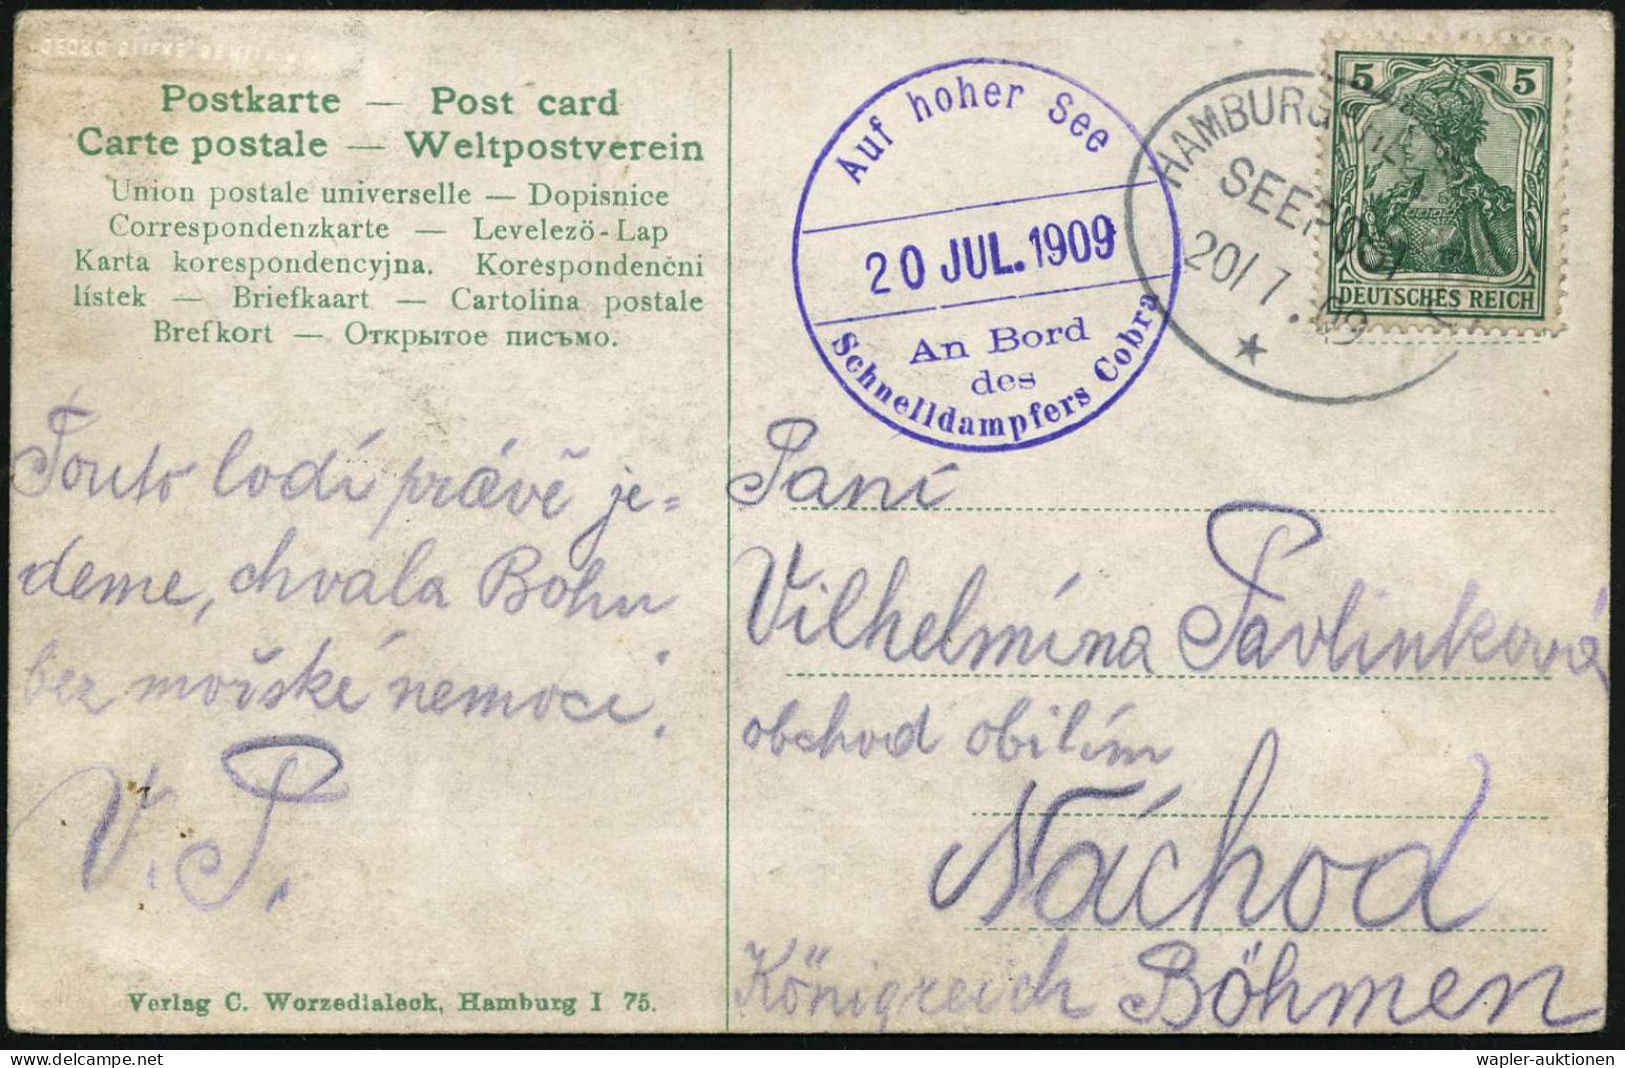 Postkarte — Post card
Carte postale — Weltpostverein
Union postale universelle — Dopisnice
Correspondenzkarte — Levelező-Lap
Karta korespondencyjna. Korespondenčni
lístek — Briefkaart — Cartolina postale
Brefkort — Открытое письмо.
Auf hoher See
20 JUL. 1909
An Bord
des
Schnelldampfers Cobra
HAMBURG
SEEPOST
20/7.09
★
5 5
DEUTSCHES REICH
Touto lodí právě je-
deme, chvala Bohu
bez mořské nemoci.
V. P.
Paní
Vilhelmína Pavlinková
obchod obilím
Náchod
Königreich Böhmen
Verlag C. Worzedialeck, Hamburg I 75.
wapler-auktionen